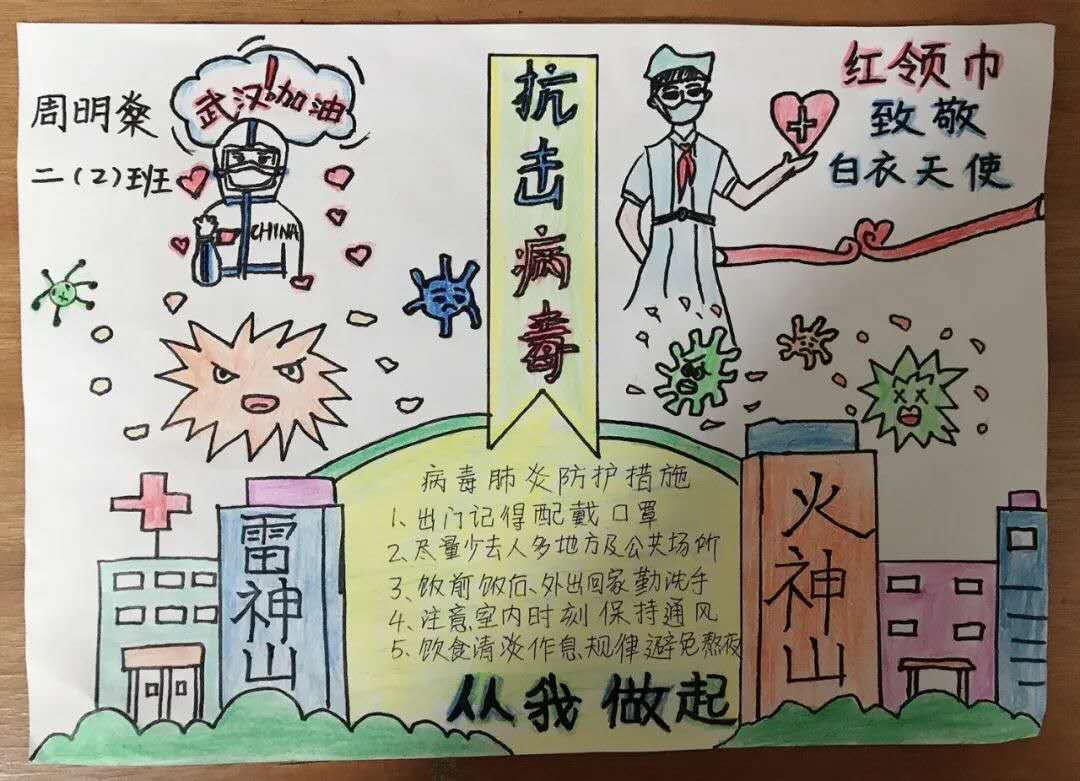 周明燊
二(2)班
武汉!加油
CHINA
抗击病毒
红领巾
致敬
白衣天使
病毒肺炎防护措施
1、出门记得配戴口罩
2、尽量少去人多地方及公共场所
3、饭前饭后、外出回家勤洗手
4、注意室内时刻保持通风
5、饮食清淡作息规律避免熬夜
从我做起
雷神山
火神山